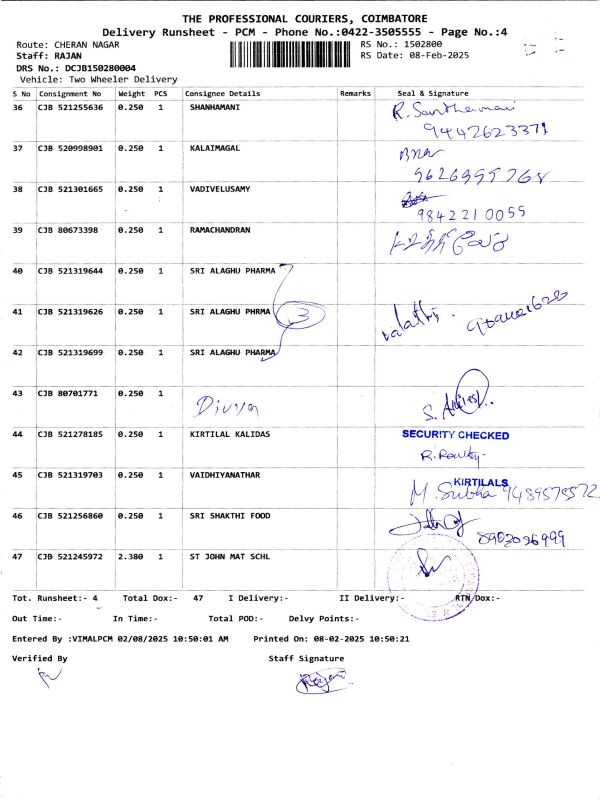 THE PROFESSIONAL COURIERS, COIMBATORE
Delivery Runsheet - PCM - Phone No.:0422-3505555 - Page No.:4
Route: CHERAN NAGAR RS No.: 1502800
Staff: RAJAN RS Date: 08-Feb-2025
DRS No.: DCJB150280004
Vehicle: Two Wheeler Delivery
S No Consignment No Weight PCS Consignee Details Remarks Seal & Signature
36 CJB 521255636 0.250 1 SHANHAMANI
9442623371
37 CJB 520998901 0.250 1 KALAIMAGAL
38 CJB 521301665 0.250 1 VADIVELUSAMY
9842210055
39 CJB 80673398 0.250 1 RAMACHANDRAN
40 CJB 521319644 0.250 1 SRI ALAGHU PHARMA
41 CJB 521319626 0.250 1 SRI ALAGHU PHRMA 3
42 CJB 521319699 0.250 1 SRI ALAGHU PHARMA
43 CJB 80701771 0.250 1 Divya
44 CJB 521278185 0.250 1 KIRTILAL KALIDAS SECURITY CHECKED
45 CJB 521319703 0.250 1 VAIDHIYANATHAR KIRTILALS
M. Subha 9489575572
46 CJB 521256860 0.250 1 SRI SHAKTHI FOOD
8903026999
47 CJB 521245972 2.380 1 ST JOHN MAT SCHL
Tot. Runsheet:- 4 Total Dox:- 47 I Delivery:- II Delivery:- RTN Dox:-
Out Time:- In Time:- Total POD:- Delvy Points:-
Entered By :VIMALPCM 02/08/2025 10:50:01 AM Printed On: 08-02-2025 10:50:21
Verified By Staff Signature